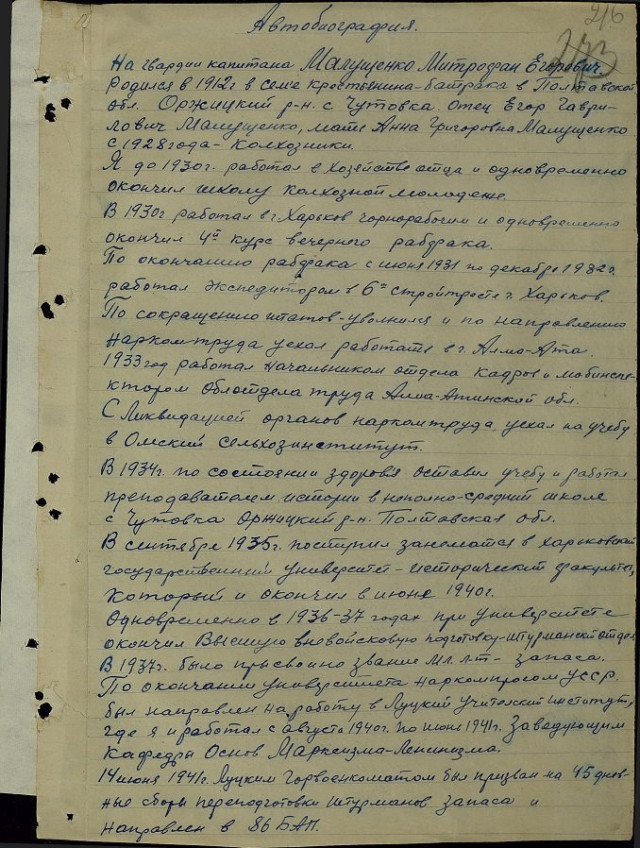 216
273
Автобиография.
На гвардии капитана Малущенко Митрофан Егорович.
Родился в 1912г в семе крестьянина-батрака в Полтавской
обл. Оржицкий р-н. с Чутовка. Отец Егор Гаври-
лович Малущенко, мать Анна Григоровна Малущенко
с 1928 года - колхозники.
Я до 1930г. работал в хозяйстве отца и одновременно
окончил школу колхозной молодежи.
В 1930г работал в г Харьков чорнорабочим и одновременно
окончил 4й курс вечернего рабфака.
По окончанию рабфака с июня 1931 по декабрь 1932г.
работал экспедитором в 6м стройтресте г. Харьков.
По сокращению штатов-уволнился и по направлению
Наркомтруда уехал работать в г. Алма-Ата.
1933 год работал начальником отдела кадров и мобинспе-
ктором Облотдела труда Алма-Атинской обл.
С ликвидацией органов наркомтруда, уехал на учебу
в Омский сельхозинститут.
В 1934г. по состоянии здоровя оставил учебу и работал
преподавателем истории в неполно-средний школе
с Чутовка Оржицкий р-н. Полтавская обл.
В сентябре 1935г. поступил заниматся в Харьковский
государственный университет - исторический факультет,
который и окончил в июне 1940г.
Одновременно в 1936-37 годах при университете
окончил Высшую вневойсковую подготовку-штурманский отдел
В 1937г. было присвоино звание мл. л-т - запаса.
По окончании университета Наркомпросом УССР.
был направлен на работу в Луцкий учительский институт,
где я и работал с августа 1940г. по июнь 1941г. Заведующим
кафедры Основ Марксизма-Ленинизма.
14 июня 1941г. Луцким Горвоенкоматом был призван на 45 днев-
ные сборы переподготовки штурманов запаса и
направлен в 86 БАП.